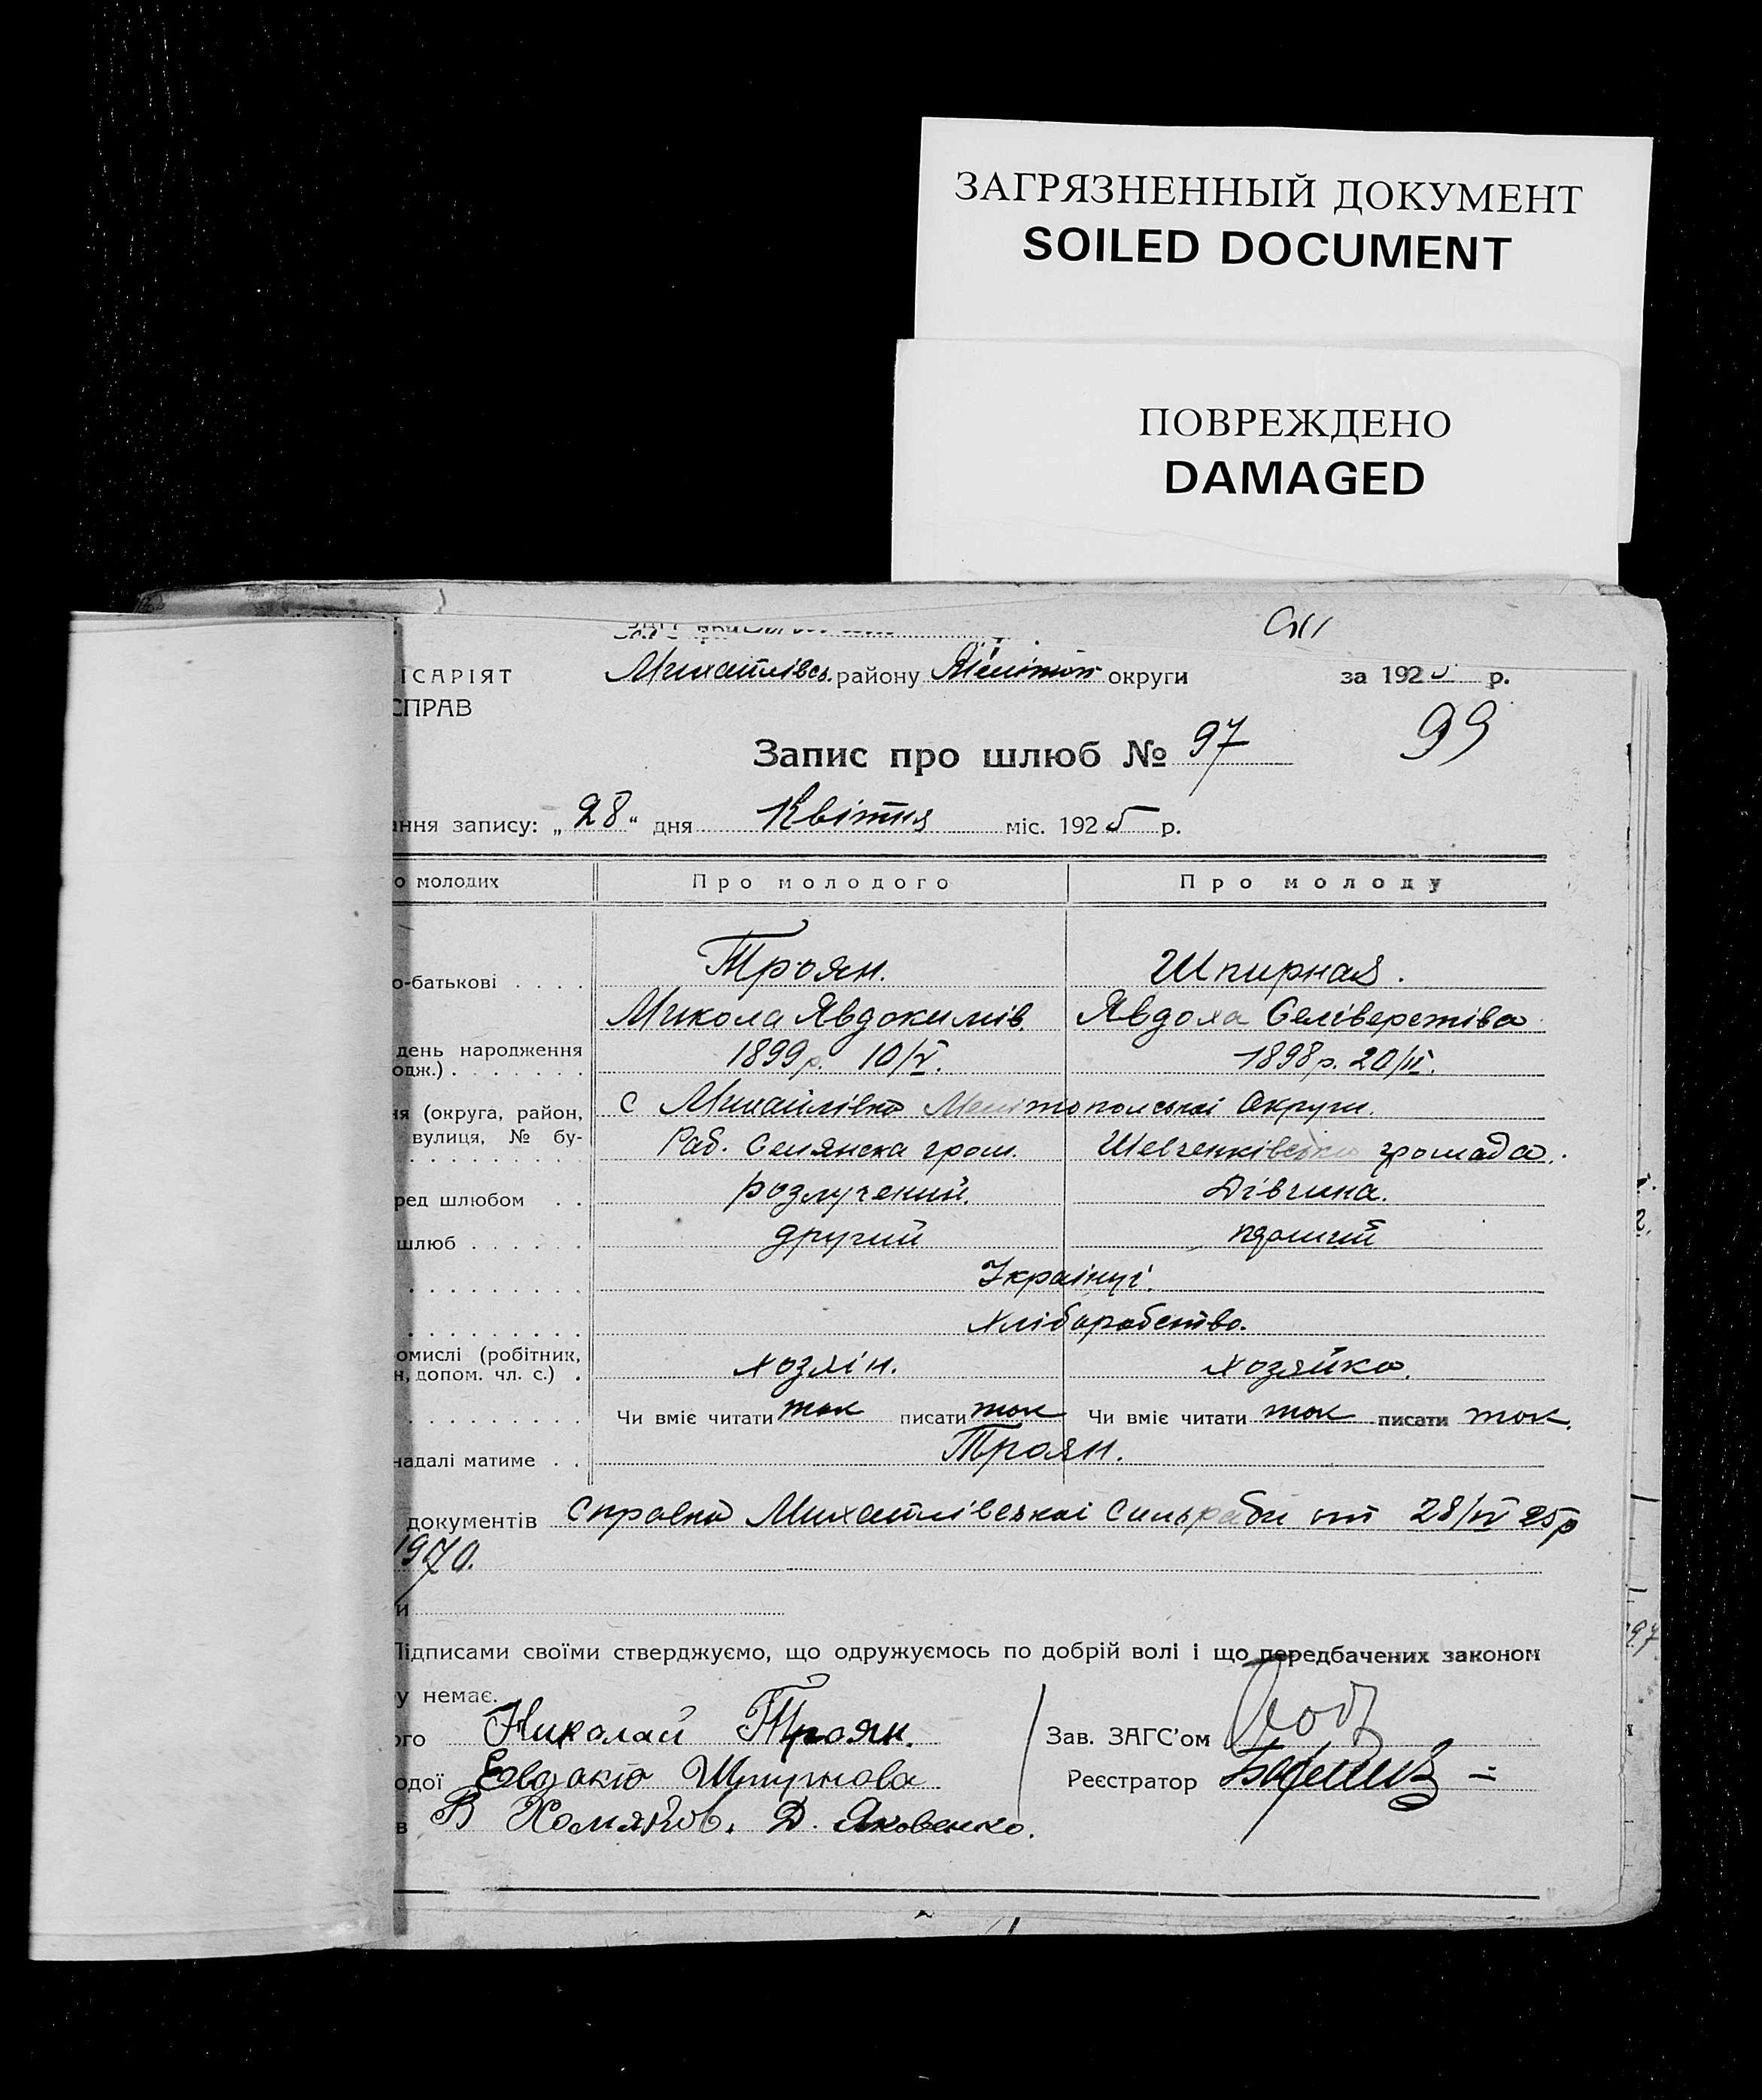 ЗАГРЯЗНЕННЫЙ ДОКУМЕНТ
SOILED DOCUMENT
ПОВРЕЖДЕНО
DAMAGED
ІСАРІЯТ Михайлівсь. району Мелітоп округи за 1925 р.
СПРАВ
99
Запис про шлюб № 97
ння запису: „28“ дня Квітня міс. 1925 р.
о молодих Про молодого Про молоду
Троян. Шпирная.
о-батькові . . . . Микола Явдокимів Явдоха Селіверстіва
день народження 1899р. 10/V. 1898р. 20/II.
одж.) . . . . . . .
ня (округа, район, с Михайлівка Мелітопольскої Округи.
вулиця, № бу- Раб. Селянска гром. Шевченківська громада.
ред шлюбом . . розлучений. Дівчина.
шлюб . . . . . . другий перший
Українці.
Хліборобство.
омислі (робітник, хозяїн. хозяйка.
н, допом. чл. с.) .
Чи вміє читати так писати так Чи вміє читати так писати так.
надалі матиме . . Троян.
документів Справка Михайлівскої Сильради от 28/IV 25р
1970.
и
Підписами своїми стверджуємо, що одружуємось по добрій волі і що передбачених законом
у немає.
ого Николай Троян. Зав. ЗАГС'ом
одої Евдокия Шпирнова Реєстратор
в В Хомяков. Д. Яковенко.
97